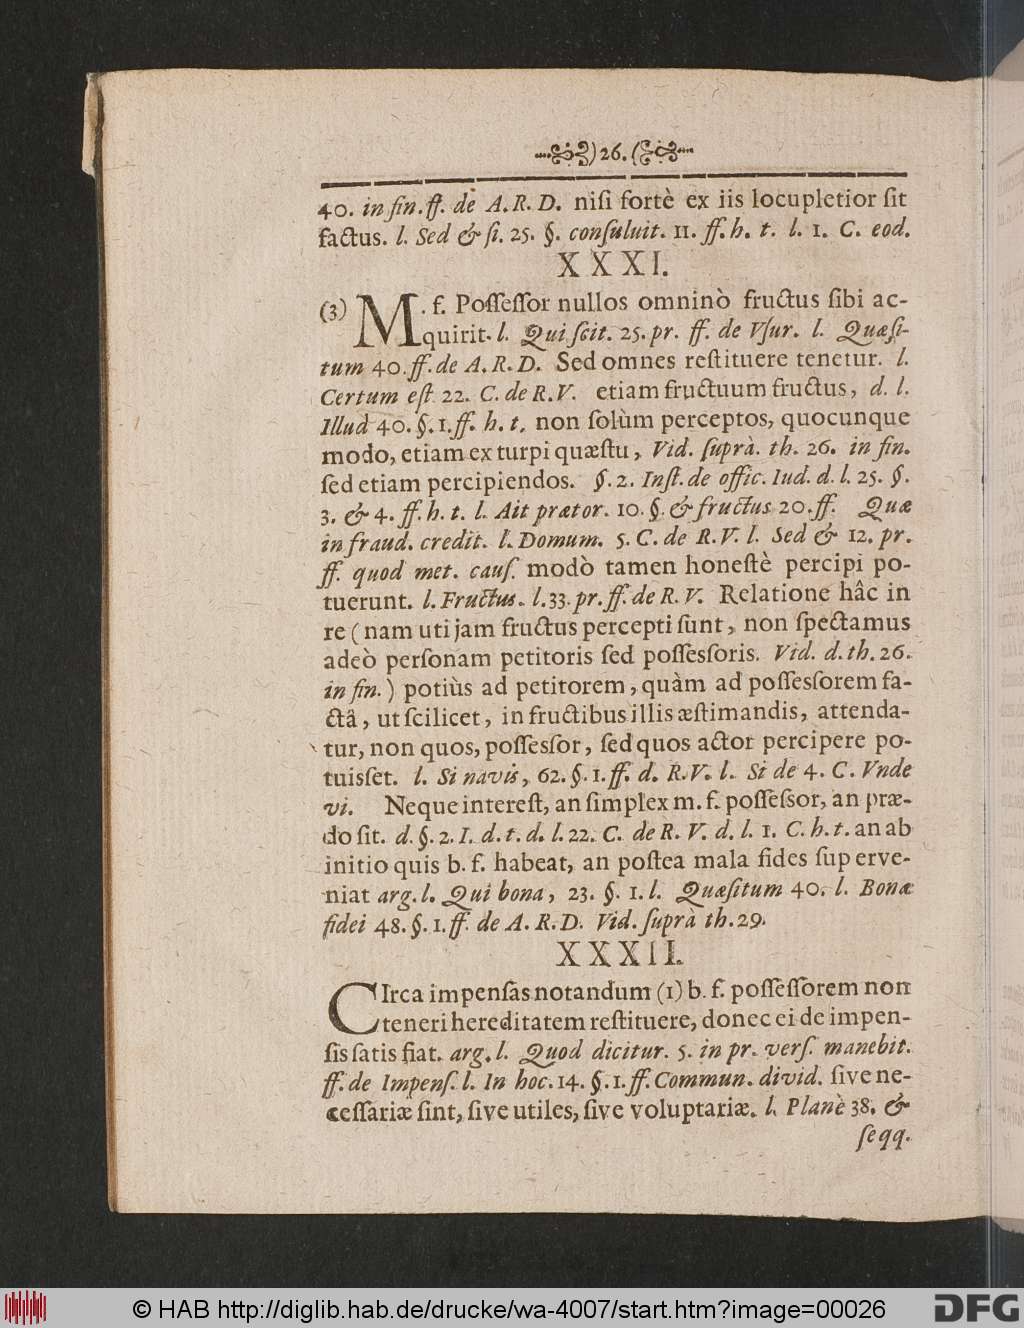 )26.(
40. in fin. ff. de A. R. D. niſi fortè ex iis locupletior ſit
factus. l. Sed & ſi. 25. §. conſuluit. 11. ff. h. t. l. 1. C. eod.
XXXI.
(3) M. f. Poſſeſſor nullos omninò fructus ſibi ac-
quirit. l. Qui ſcit. 25. pr. ff. de Vſur. l. Quæſi-
tum 40. ff. de A. R. D. Sed omnes reſtituere tenetur. l.
Certum eſt 22. C. de R. V. etiam fructuum fructus, d. l.
Illud 40. §. 1. ff. h. t. non ſolùm perceptos, quocunque
modo, etiam ex turpi quæſtu, Vid. ſuprà. th. 26. in fin.
ſed etiam percipiendos. §. 2. Inſt. de offic. Iud. d. l. 25. §.
3. & 4. ff. h. t. l. Ait prætor. 10. §. & fructus 20. ff. Quæ
in fraud. credit. l. Domum. 5. C. de R. V. l. Sed & 12. pr.
ff. quod met. cauſ. modò tamen honeſtè percipi po-
tuerunt. l. Fructus. l. 33. pr. ff. de R. V. Relatione hâc in
re (nam uti jam fructus percepti ſunt, non ſpectamus
adeò perſonam petitoris ſed poſſesſoris. Vid. d. th. 26.
in fin.) potiùs ad petitorem, quàm ad poſſesſorem fa-
ctâ, ut ſcilicet, in fructibus illis æſtimandis, attenda-
tur, non quos, poſſesſor, ſed quos actor percipere po-
tuisſet. l. Si navis, 62. §. 1. ff. d. R. V. l. Si de 4. C. Vnde
vi. Neque intereſt, an ſimplex m. f. poſſeſsor, an præ-
do ſit. d. §. 2. I. d. t. d. l. 22. C. de R. V. d. l. 1. C. h. t. an ab
initio quis b. f. habeat, an poſtea mala fides ſup erve-
niat arg. l. Qui bona, 23. §. 1. l. Quæſitum 40. l. Bonæ
fidei 48. §. 1. ff. de A. R. D. Vid. ſuprà th. 29.
XXXII.
CIrca impenſas notandum (1) b. f. poſſeſſorem non
teneri hereditatem reſtituere, donec ei de impen-
ſis ſatis fiat. arg. l. Quod dicitur. 5. in pr. verſ. manebit.
ff. de Impenſ. l. In hoc. 14. §. 1. ff. Commun. divid. ſive ne-
ceſſariæ ſint, ſive utiles, ſive voluptariæ. l. Planè 38. &
ſeqq.
© HAB http://diglib.hab.de/drucke/wa-4007/start.htm?image=00026
DFG